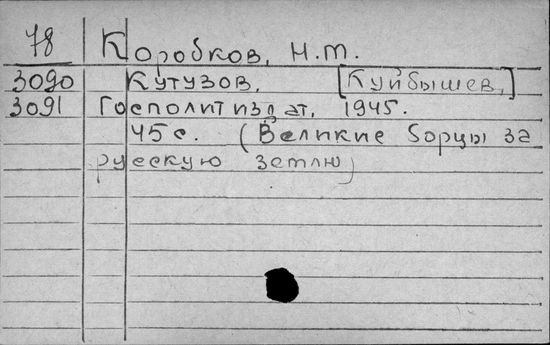 78 Коробков, Н.М.
3090 Кутузов. [Куйбышев,]
3091 Госполитиздат, 1945.
45 с. (Великие борцы за
русскую землю)